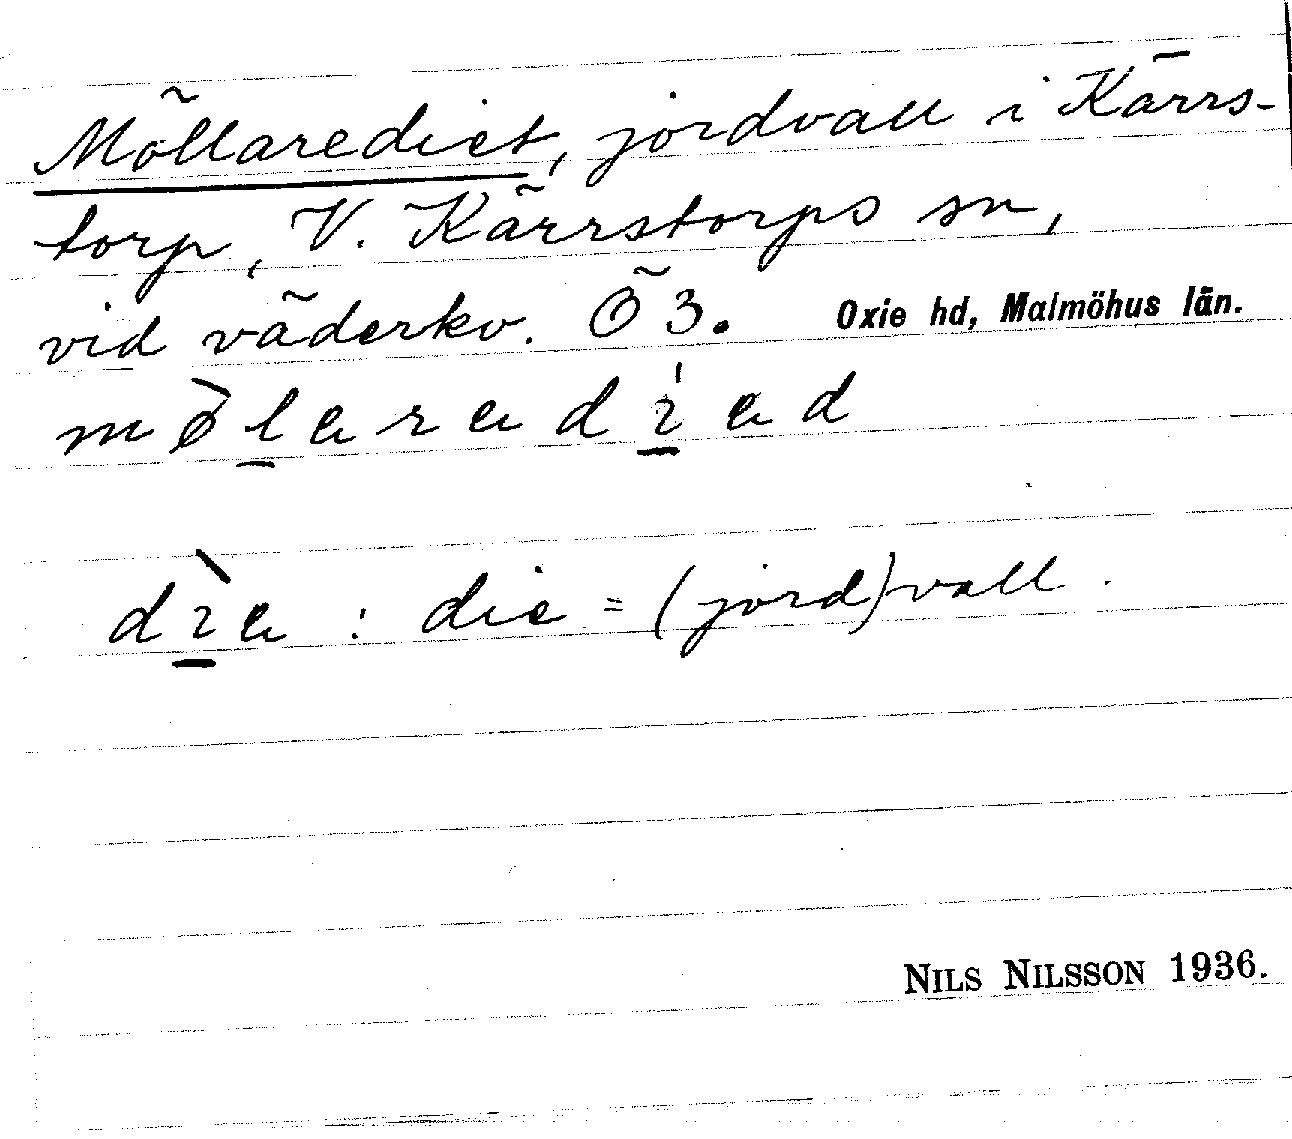 Möllarediet, jordvall i Kärrs-
torp, V. Kärrstorps sn,
vid väderkv. Ö 3. Oxie hd, Malmöhus län.
mø̀laradı̍ad
dı̀a : die = (jord)vall.
NILS NILSSON 1936.